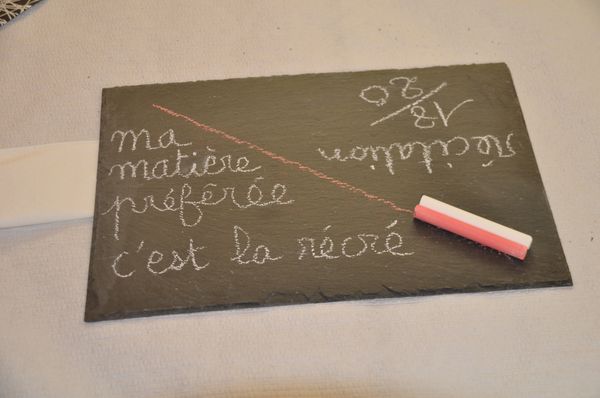 ma
matière
préférée
c'est la récré
récitation
18/20